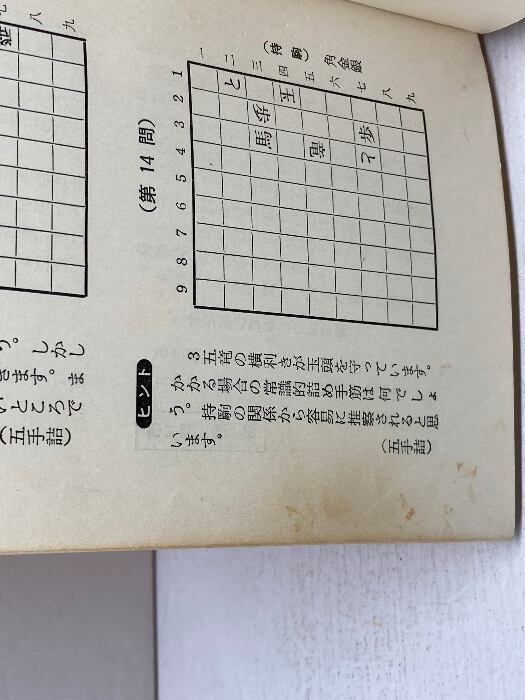 (第 14 問)
(持駒) 角金銀
1 2 3 4 5 6 7 8 9
一
二
三
四
五
六
七
八
九
と
王
馬
歩
ヒント
3五竜の横利きが玉頭を守っています。
かかる場合の常識的詰め手筋は何でしょ
う。持駒の関係から容易に推察されると思
います。
(五手詰)
八
九
う。しかし
きます。ま
いところで
(五手詰)